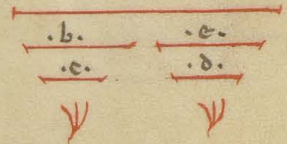 .b. .e.
.c. .d.